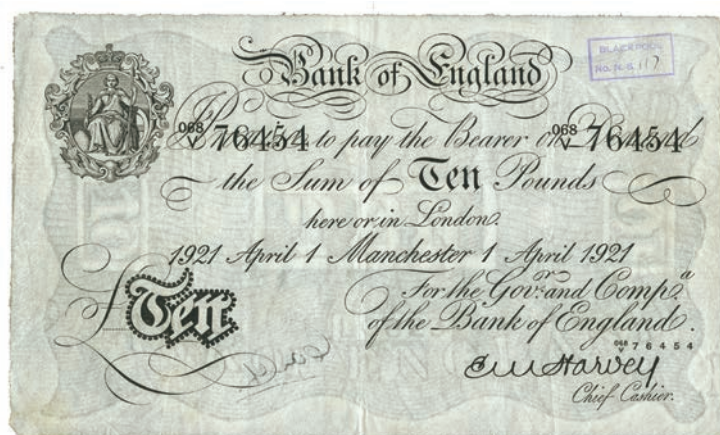 Bank of England
BLACKPOOL
No. N.S. 117
068/V 76454 to pay the Bearer on Demand 068/V 76454
the Sum of Ten Pounds
here or in London.
1921 April 1 Manchester 1 April 1921
For the Govʳ. and Compᵃ.
of the Bank of England.
£Ten
068/V 76454
E M Harvey
Chief Cashier.